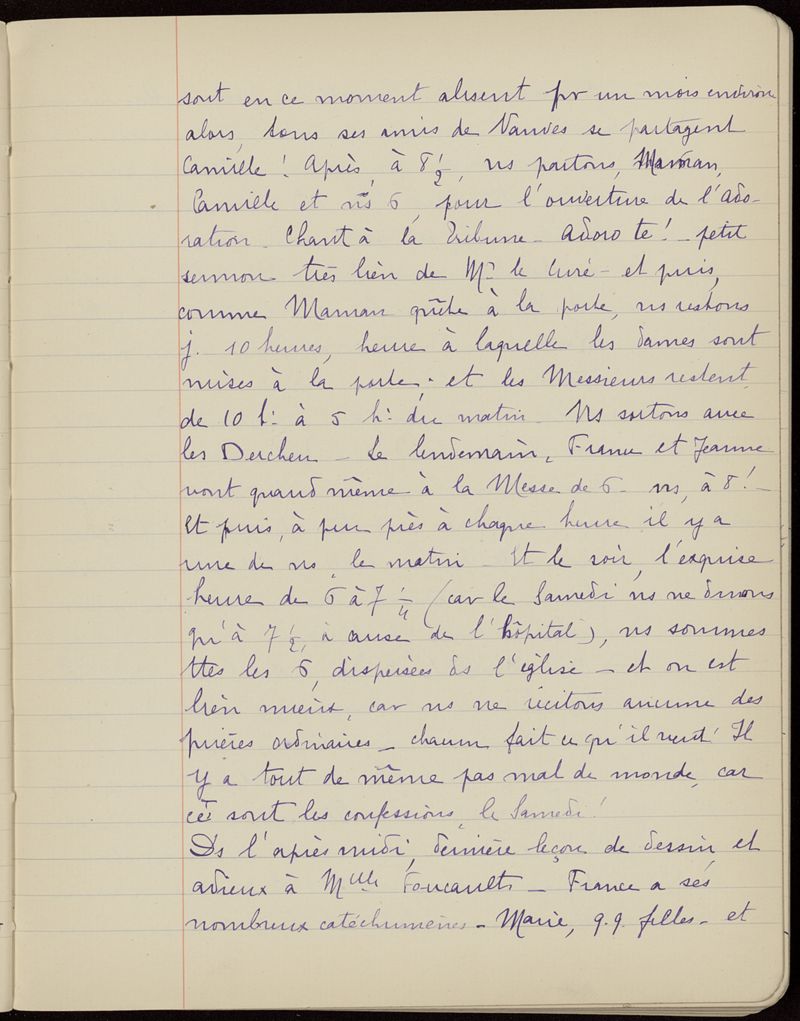 sont en ce moment absent pr un mois environ
alors, tous ses amis de Vanves se partagent
Camille ! Après, à 8 1/2, ns partons, Maman,
Camille et ns 6, pour l'ouverture de l'Ado-
ration. Chant à la Tribune - Adoro te ! - petit
sermon très bien de Mr le Curé - et puis,
comme Maman quête à la porte, ns restons
j. 10 heures, heure à laquelle les dames sont
mises à la porte ; et les Messieurs restent,
de 10 h. à 5 h. du matin - Ns sortons avec
les - Le lendemain, France et Jeanne
vont quand même à la Messe de 6 - ns, à 8 ! -
Et puis, à peu près à chaque heure il y a
une de ns, le matin - Et le soir, l'exquise
heure de 6 à 7 1/4 (car le Samedi ns ne dînons
qu'à 7 1/2, à cause de l'hôpital), ns sommes
ttes les 6, dispersées ds l'église - et on est
bien mieux, car ns ne récitons aucune des
prières ordinaires - chacun fait ce qu'il veut ! Il
y a tout de même pas mal de monde, car
ce sont les confessions, le Samedi !
Ds l'après midi, dernière leçon de dessin, et
adieux à Mlle Foucault - France a ses
nombreux catéchumènes - Marie, q.q. filles - et